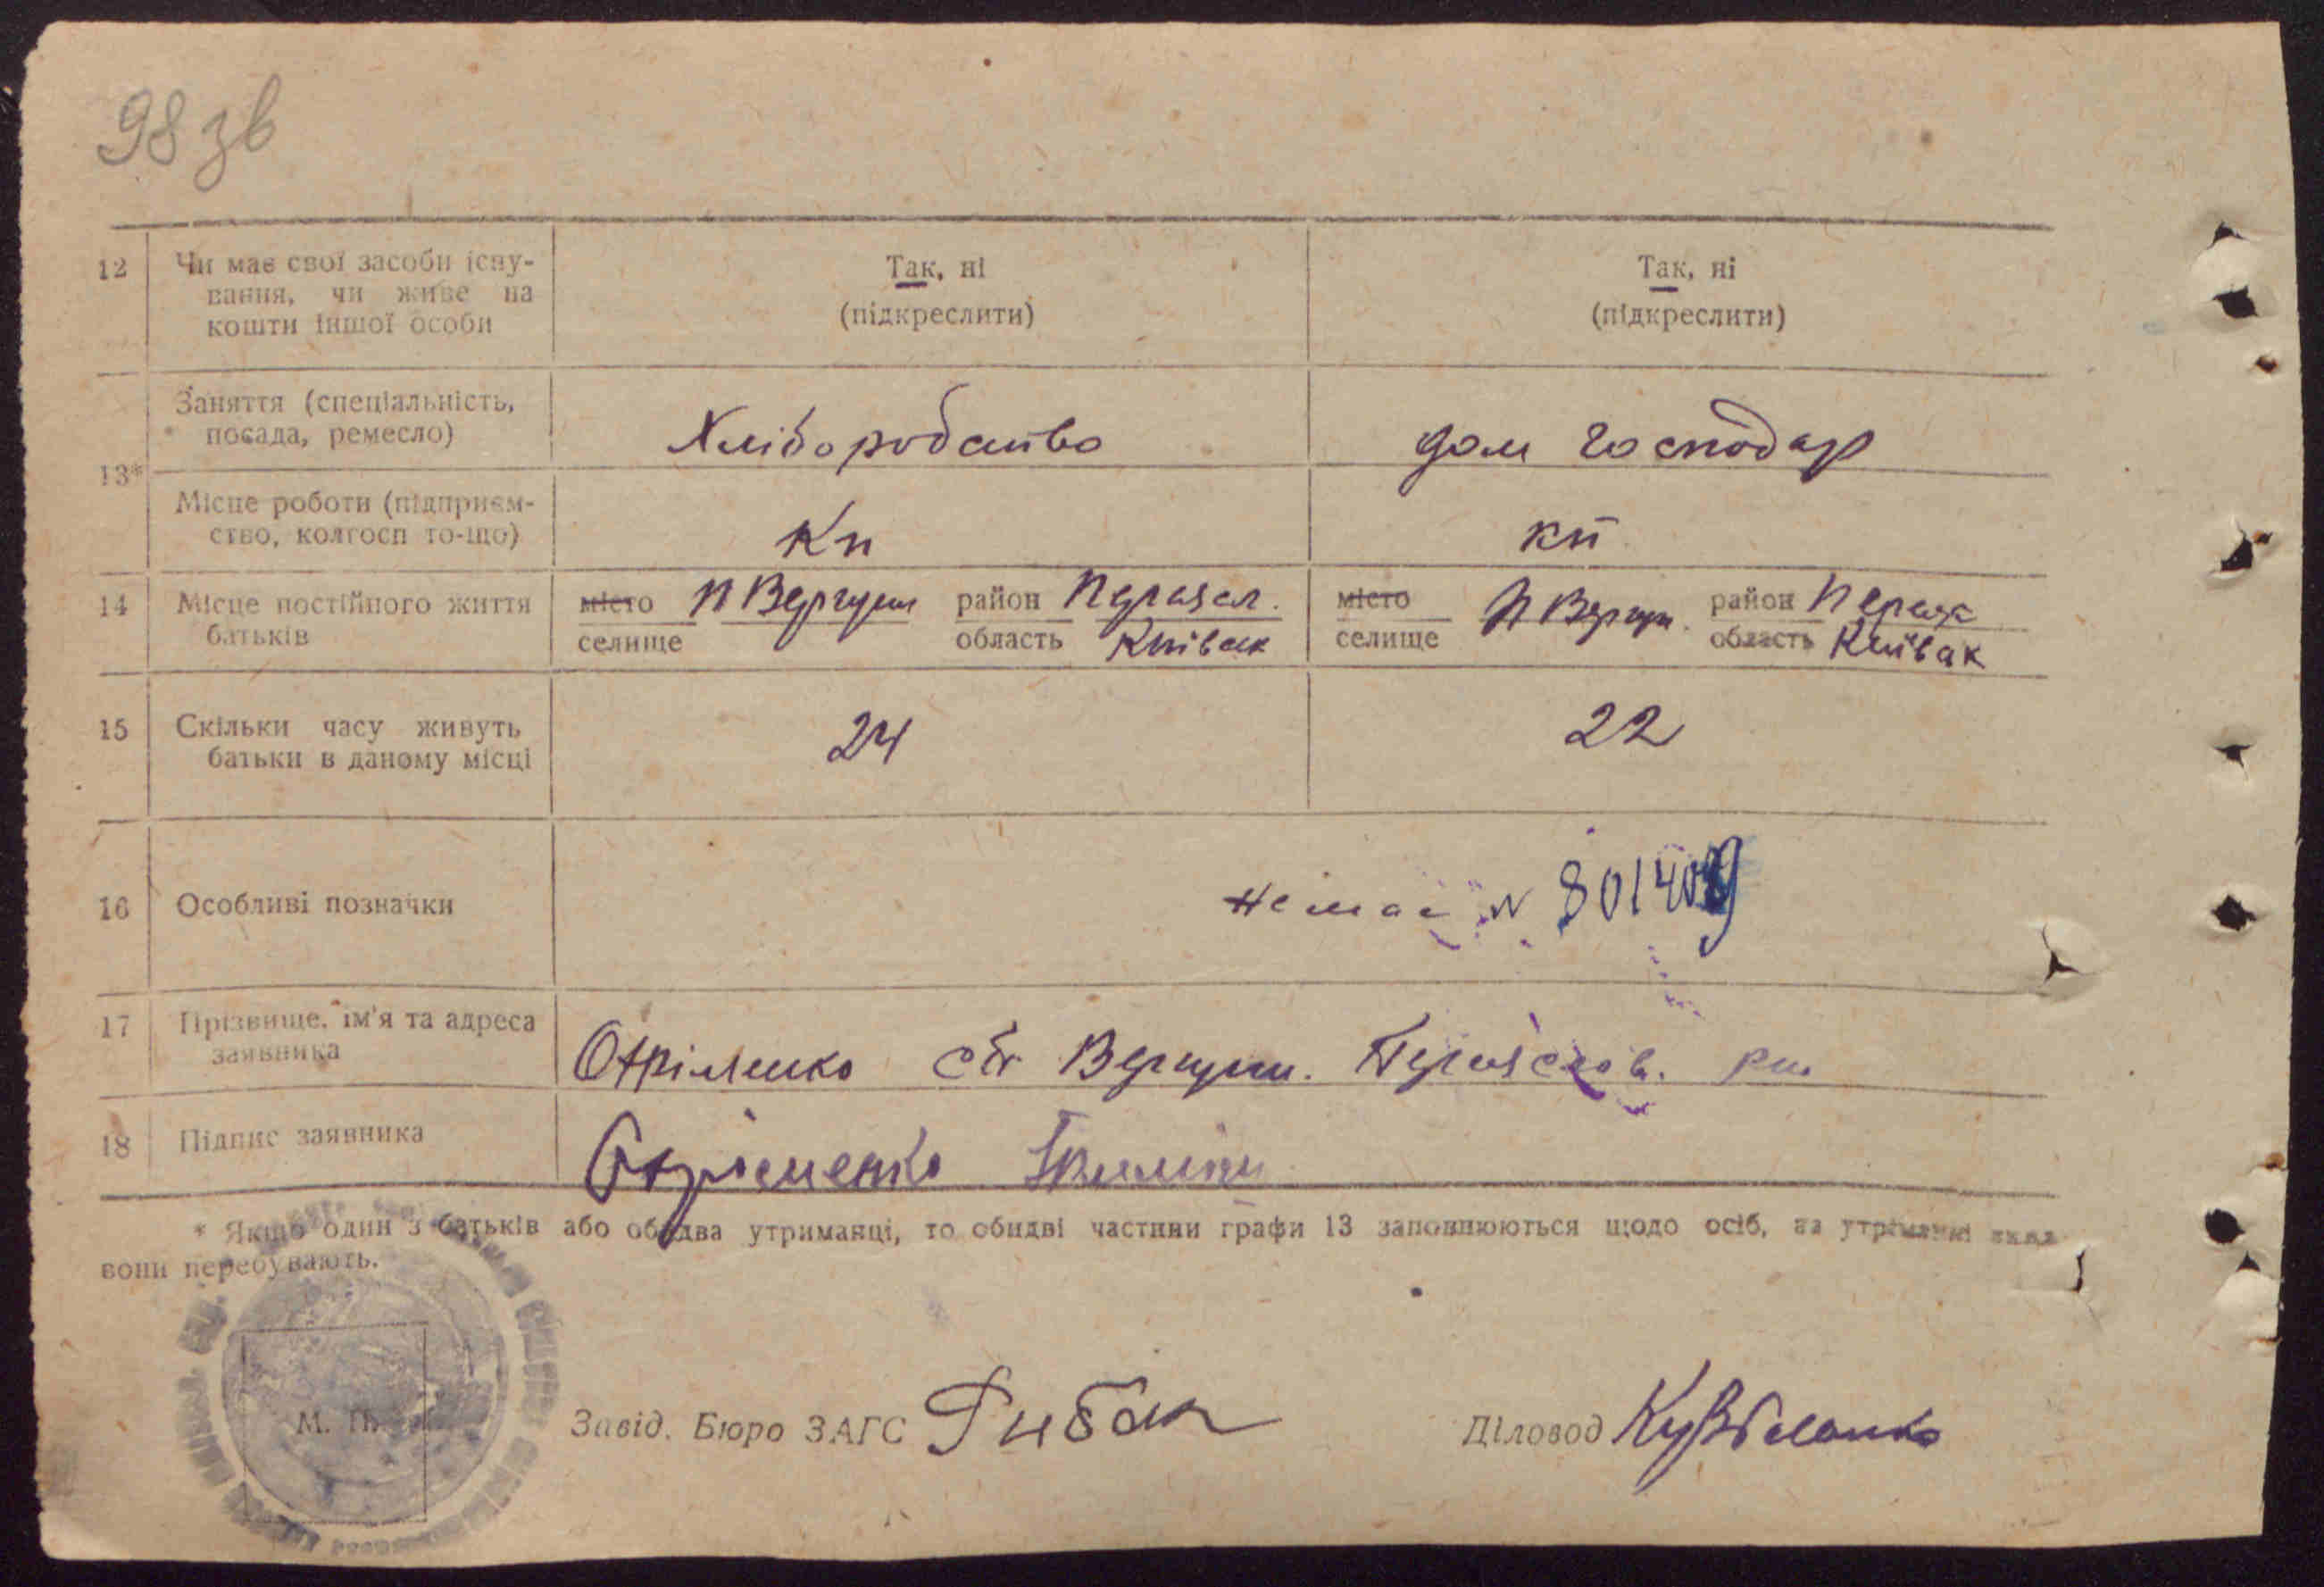 98 зв
12 Чи має свої засоби існу-
вання, чи живе на
кошти іншої особи
Так, ні
(підкреслити)
Так, ні
(підкреслити)
13*
Заняття (спеціальність,
посада, ремесло)
Хліборобство
дом господар
Місце роботи (підприєм-
ство, колгосп то-що)
Кп
кп
14 Місце постійного життя
батьків
місто
селище
район
область
Київськ
місто
селище
район
область
15 Скільки часу живуть
батьки в даному місці
24
22
16 Особливі позначки
немає N
17 Прізвище, ім'я та адреса
заявника
18 Підпис заявника
* Якщо один з батьків або обидва утриманці, то обидві частини графи 13 заповнюються щодо осіб, на утриманні яких
вони перебувають.
М. П.
Завід. Бюро ЗАГС Рибак
Діловод